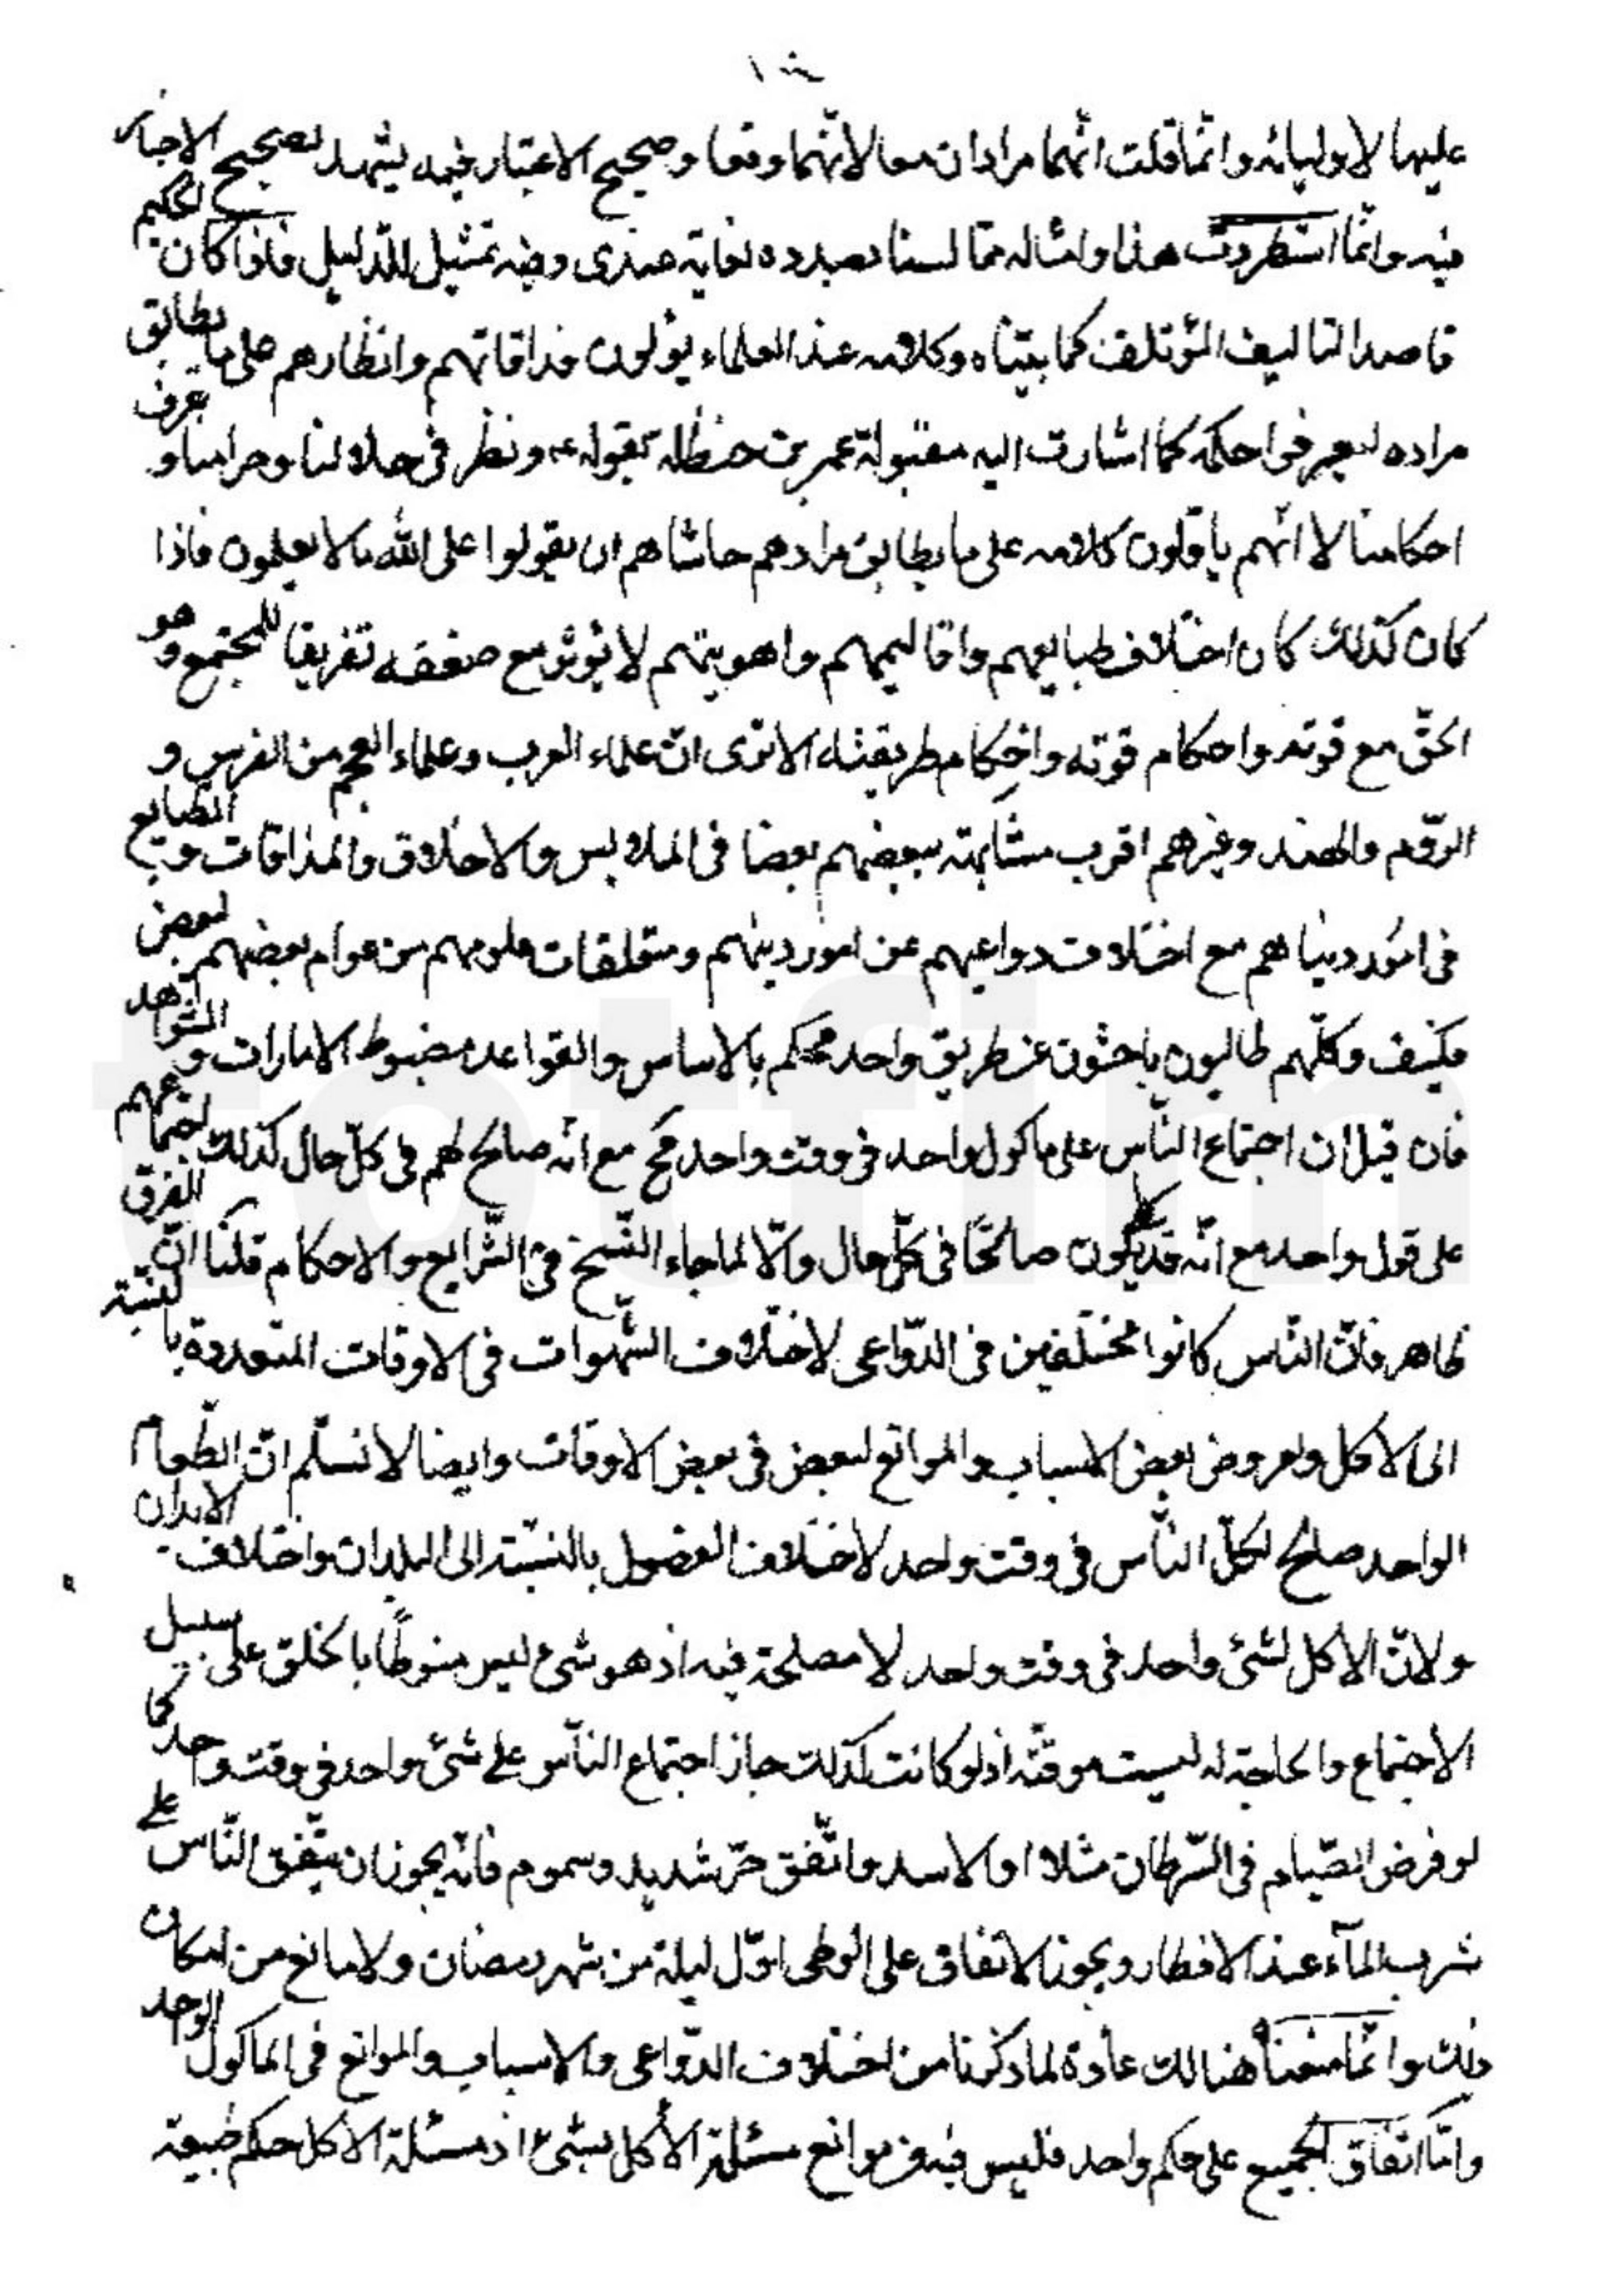 عليها لاوليائه وانّما قلت انّهما مرادان معا لانّهما وقعا وصحيح الاعتبار فيه يشهد بصحيح الاخبار
فيه وانّما استطردت هذا وامثاله ممّا لسنا بصدده لغاية عندى وفيه تمثيل للدليل فاذا كان الحكيم
قاصدا لتاليف المؤتلف كما بيّناه وكلامه عند العلماء يؤلون مذاقاتهم وانظارهم على ما يطابق
مراده ليعرفوا حكمه كما اشارت اليه مقبولة عمر بن حنظله بقوله ع ونظر فى حلالنا وحرامنا وعرف
احكامنا لا انّهم ياوّلون كلامه على ما يطابق مرادهم حاشاهم ان يقولوا على الله ما لا يعلمون فاذا
كان كذلك كان اختلاف طبايعهم واقاليمهم واهويتهم لا يؤثر مع ضعفه تفريقا للمجتمع وهو
الحقّ مع قوته واحكام قوته واحكام طريقته الا ترى انّ علماء العرب وعلماء العجم من الفرس و
الرّوم والهند وغيرهم اقرب مشابهته ببعضهم بعضا فى الملابس والاخلاق والمذاقات والطبايع
فى امور دنياهم مع اختلاف دواعيهم عن امور دينهم ومتعلقات علومهم من عوام بعضهم لبعض
فكيف وكلّهم طالبون باحثون عن طريق واحد محكم بالاساس والقواعد مضبوط الامارات والشواهد
فان قيل ان اجتماع النّاس على ماكول واحد فى وقت واحد مح مع انّه صالح لهم فى كلّ حال كذلك اجتماعهم
على قول واحد مع انّه قد يكون صالحًا فى كلّ حال والّا لما جاء النّسخ فى الشّرايع والاحكام قلنا انّ الفرق
ظاهر فانّ النّاس كانوا مختلفين فى الدّواعى لاختلاف الشّهوات فى الاوقات المتعددة بالنسبة
الى الاكل ولعروض بعض الاسباب والموانع لبعض فى بعض الاوقات وايضا لا نسلّم انّ الطّعام
الواحد صالح لكلّ النّاس فى وقت واحد لاختلاف الفصول بالنّسبة الى البلدان واختلاف الابدان
ولانّ الاكل لشئ واحد فى وقت واحد لا مصلحة فيه اذ هو شئ ليس منوطًا بالخلق على سبيل
الاجتماع والحاجة له ليست موقتّه اذ لو كانت كذلك جاز اجتماع النّاس على شئ واحد فى وقت واحد كما
لو فرض الصّيام فى السّرطان مثلا او الاسد واتّفق حرّ شديد وسموم فانّه يجوز ان يتّفق النّاس على
شرب المآء عند الافطار ويجوز الاتفاق على الوطى اوّل ليلة من شهر رمضان ولا مانع من امكان
ذلك وانّما منعنا هنالك عادة لما ذكرنا من اختلاف الدّواعى والاسباب والموانع فى الماكول الواحد
وامّا اتفاق الجميع على حكم واحد فليس فيه من موانع مسئلة الاكل بشئ اذ مسئلة الاكل حكم طبيعة